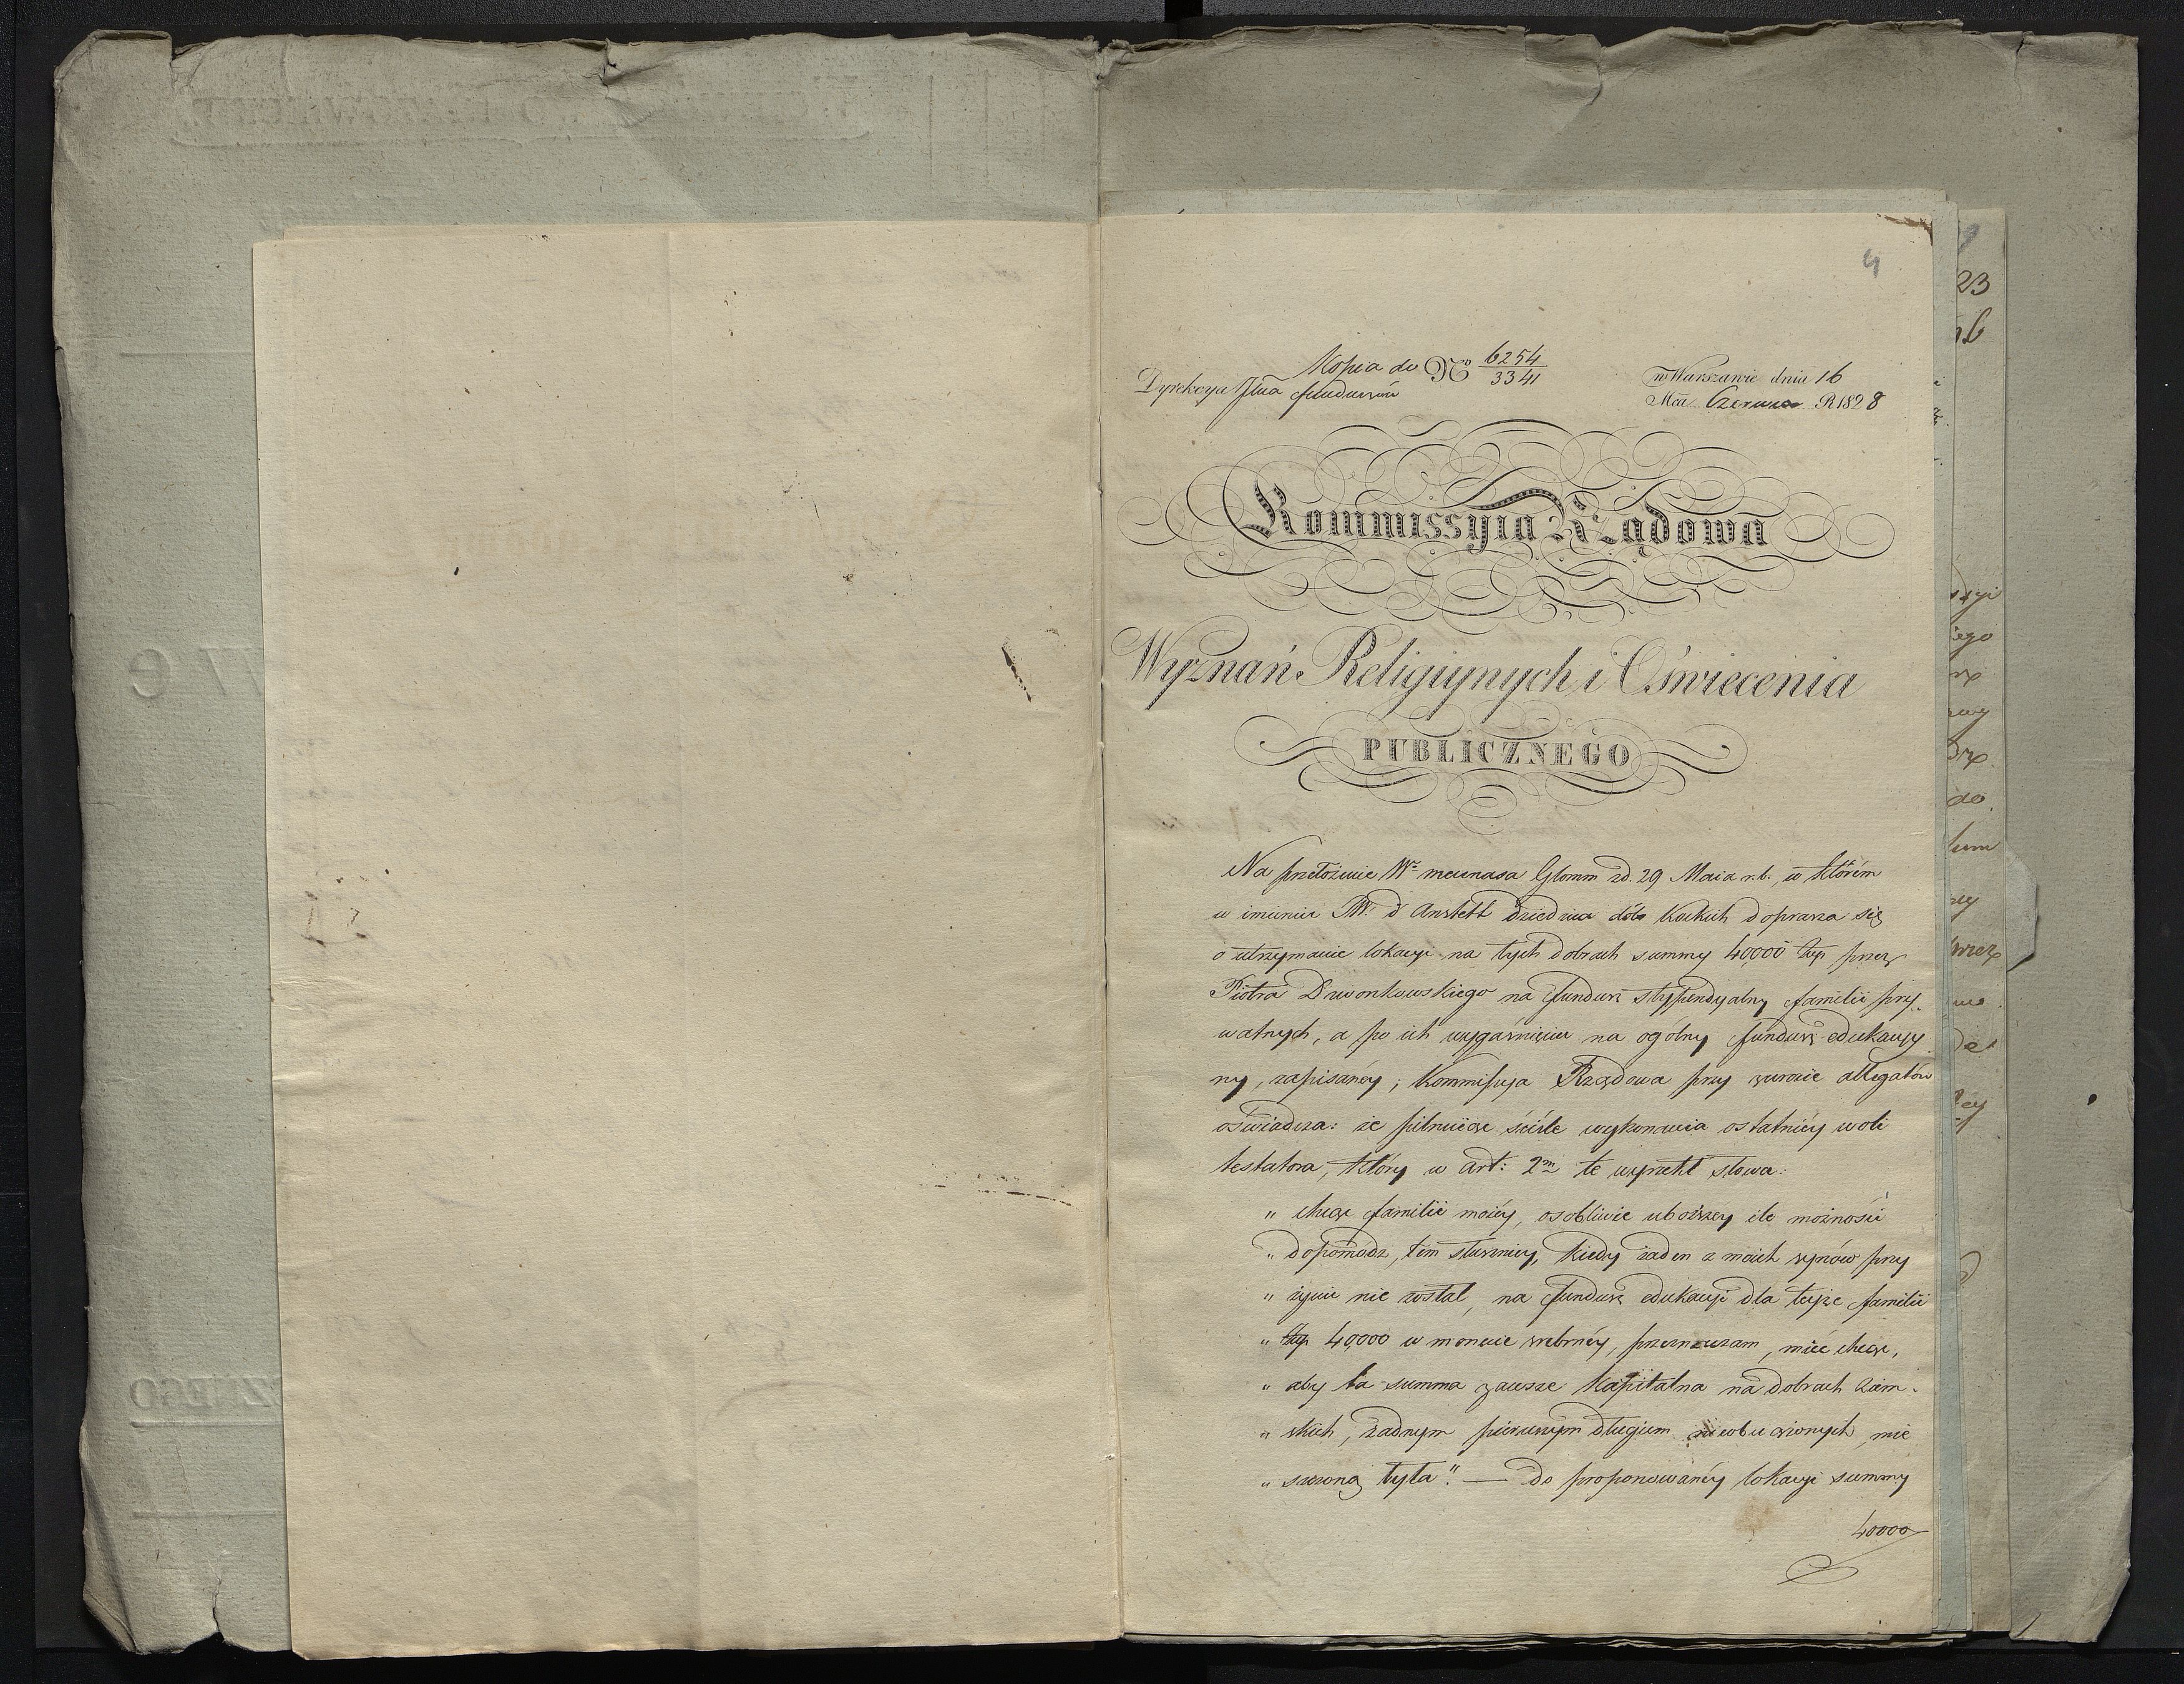 4
Kopia do No 6254/3341
Dyrekcya Jlna funduszów
w Warszawie dnia 16
Mca Czerwca R 1828
Kommissyia Rządowa
Wyznań Religiynych i Oświecenia
PUBLICZNEGO
Na przełożenie Wo mecenasa Glomm zd. 29 Maia r.b., w którém
w imieniu JW. d'Anstett dziedzica dóbr Kockich doprasza się
o utrzymanie lokacyi na tych dobrach summy 40,000 złp przez
Piotra Dzwonkowskiego na fundusz stypendyalny familii pry-
watnych, a po ich wygaśnięciu na ogólny fundusz edukacyy
ny, zapisanéy; Kommissyja Rządowa przy zwrocie allegatów
oświadcza: że pilnuiąc ściśle wykonania ostatniéy woli
testatora, który w art: 2m te wyrzekł słowa:
" chcąc familii moiéy, osobliwie uboższey ile możności
" dopomódz, tém słuszniey, kiedy żaden z moich synów przy
" życiu nie został, na fundusz edukacyi dla teyże familii
" złp 40,000 w monecie srebrnéy, przeznaczam, mieć chcąc,
" aby ta summa zawsze kapitalna na dobrach ziem-
" skich, żadnym pierwszym długiem nieobciążonych, mie
" szczoną była". — Do proponowanéy lokacyi summy
40000
23